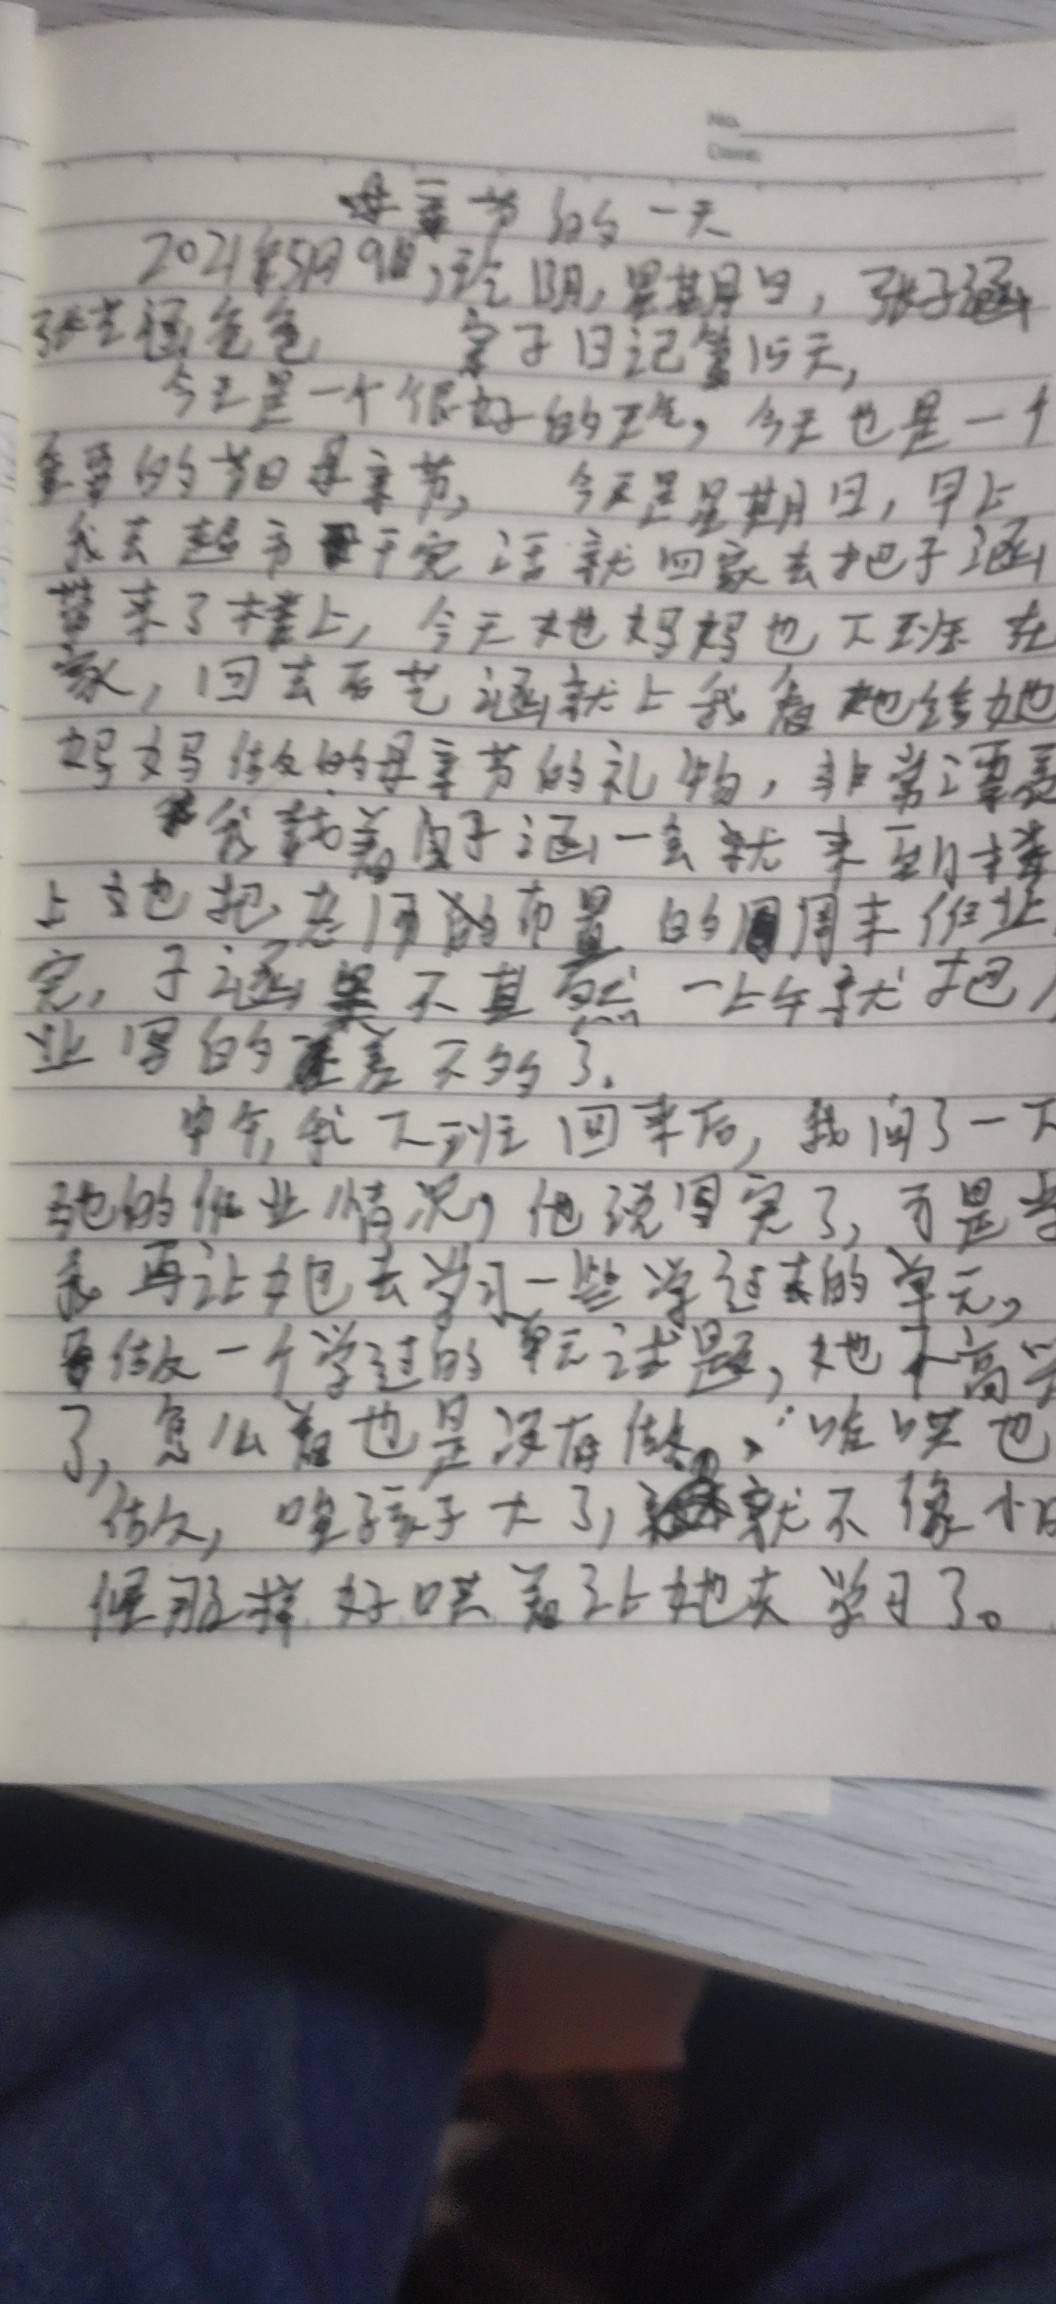 No.
Date
母亲节的一天
2021年5月9日,阴,星期日,张子涵
张艺涵爸爸 亲子日记第15天,
今天是一个很好的天气,今天也是一个
重要的节日母亲节, 今天是星期日,早上
我去超市干完活就回家去把子涵
带来了楼上,今天她妈妈也下班在
家,回去后艺涵就上我看她给她
妈妈做的母亲节的礼物,非常漂亮
我载着子涵一会就来到楼
上她把老师的布置的周末作业
完,子涵果不其然一上午就把
业写的差不多了.
中午,我下班回来后,我问了一下
她的作业情况,他说写完了,于是
我再让她去学习一些学过去的单元,
再做一个学过的单元试题,她不高兴
了,怎么着也是没有做,哄也
做,哎孩子大了,就不像小时
候那样好哄着让她去学习了。